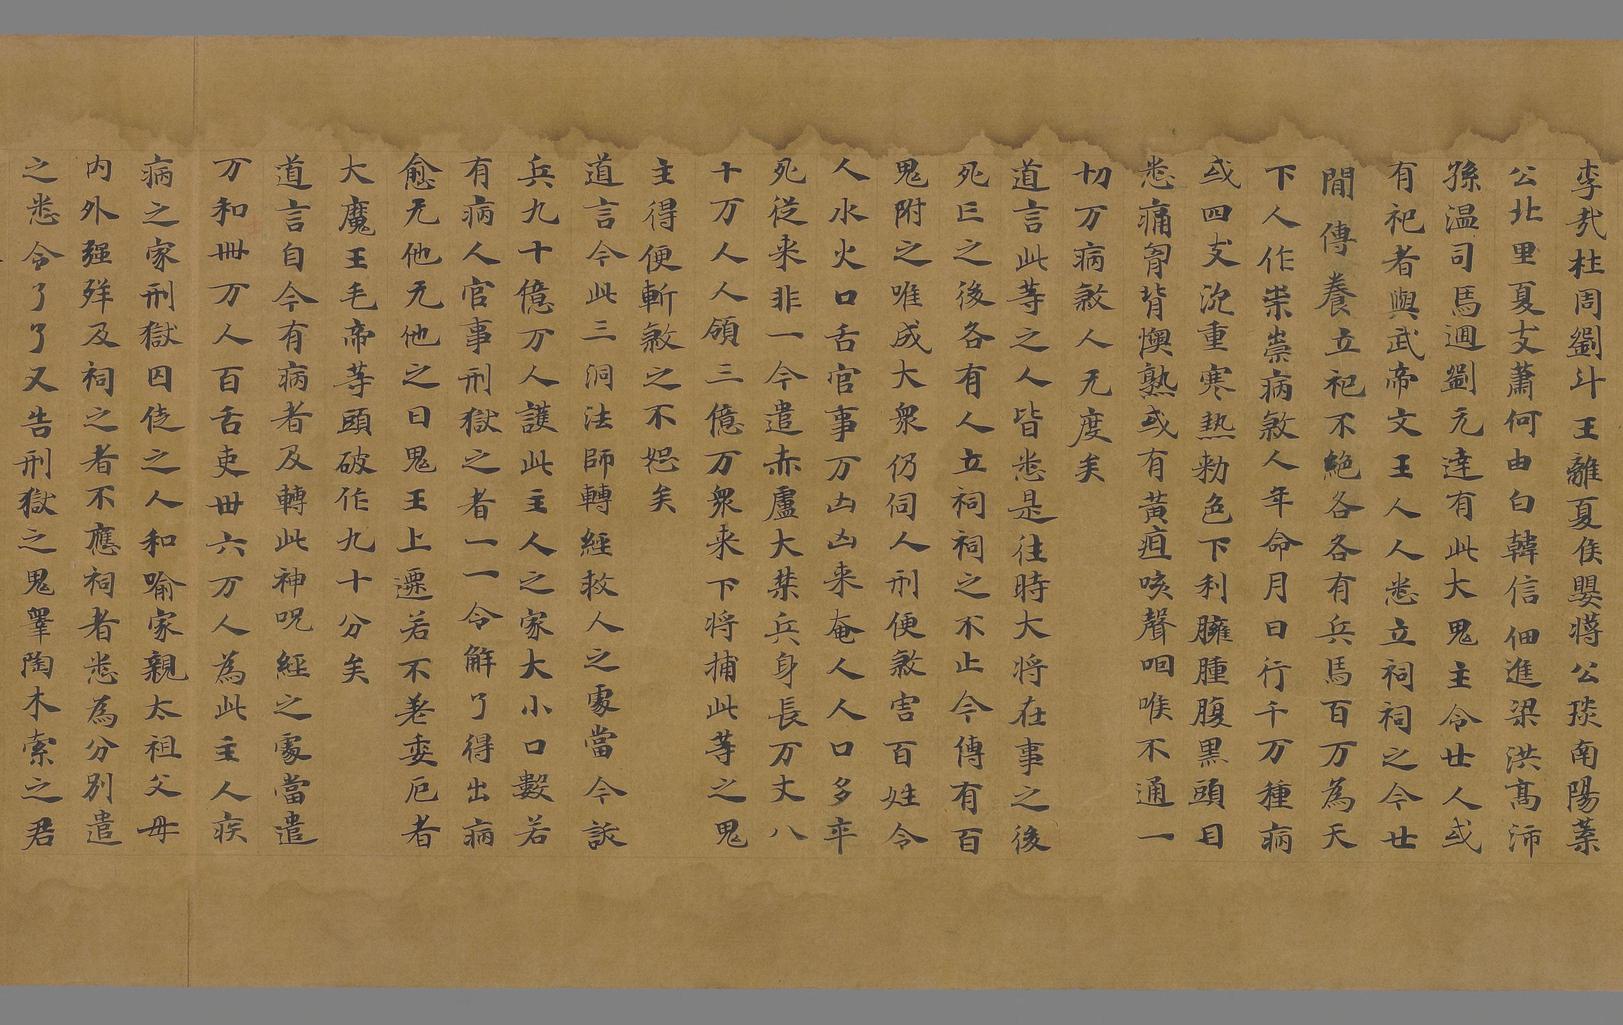 李兆杜周劉斗王離夏侯嬰蔣公琰南陽蔡
公北里夏支蕭何由白韓信佃進梁洪髙沛
孫温司馬迥劉元達有此大鬼主令廿人或
有祀者與武帝文王人人悉立祠祠之今廿
閒傳養立祀不絶各各有兵馬百万為天
下人作祟祟病煞人年命月日行千万種病
或四支沉重寒熱勑色下利臃腫腹黒頭目
悉痛匈背懊熟或有黃疸咳聲咽喉不通一
切万病煞人无度矣
道言此等之人皆悉是往時大将在事之後
死亡之後各有人立祠祠之不止今傳有百
鬼附之唯成大衆仍伺人刑便煞害百姓令
人水火口舌官事万凶凶来奄人人口多卒
死従来非一今遣赤盧大桀兵身長万丈八
十万人人領三億万衆来下将捕此等之鬼
主得便斬煞之不恕矣
道言今此三洞法師轉經救人之處當令談
兵九十億万人護此主人之家大小口數若
有病人官事刑獄之者一一令解了得出病
愈无他无他之曰鬼王上遷若不差委厄者
大魔王毛帝等頭破作九十分矣
道言自今有病者及轉此神呪經之處當遣
万和卌万人百舌吏卌六万人為此主人疾
病之家刑獄囚徒之人和喻家親太祖父母
内外強殍及祠之者不應祠者悉為分別遣
之悉令了了又告刑獄之鬼睪陶木索之君